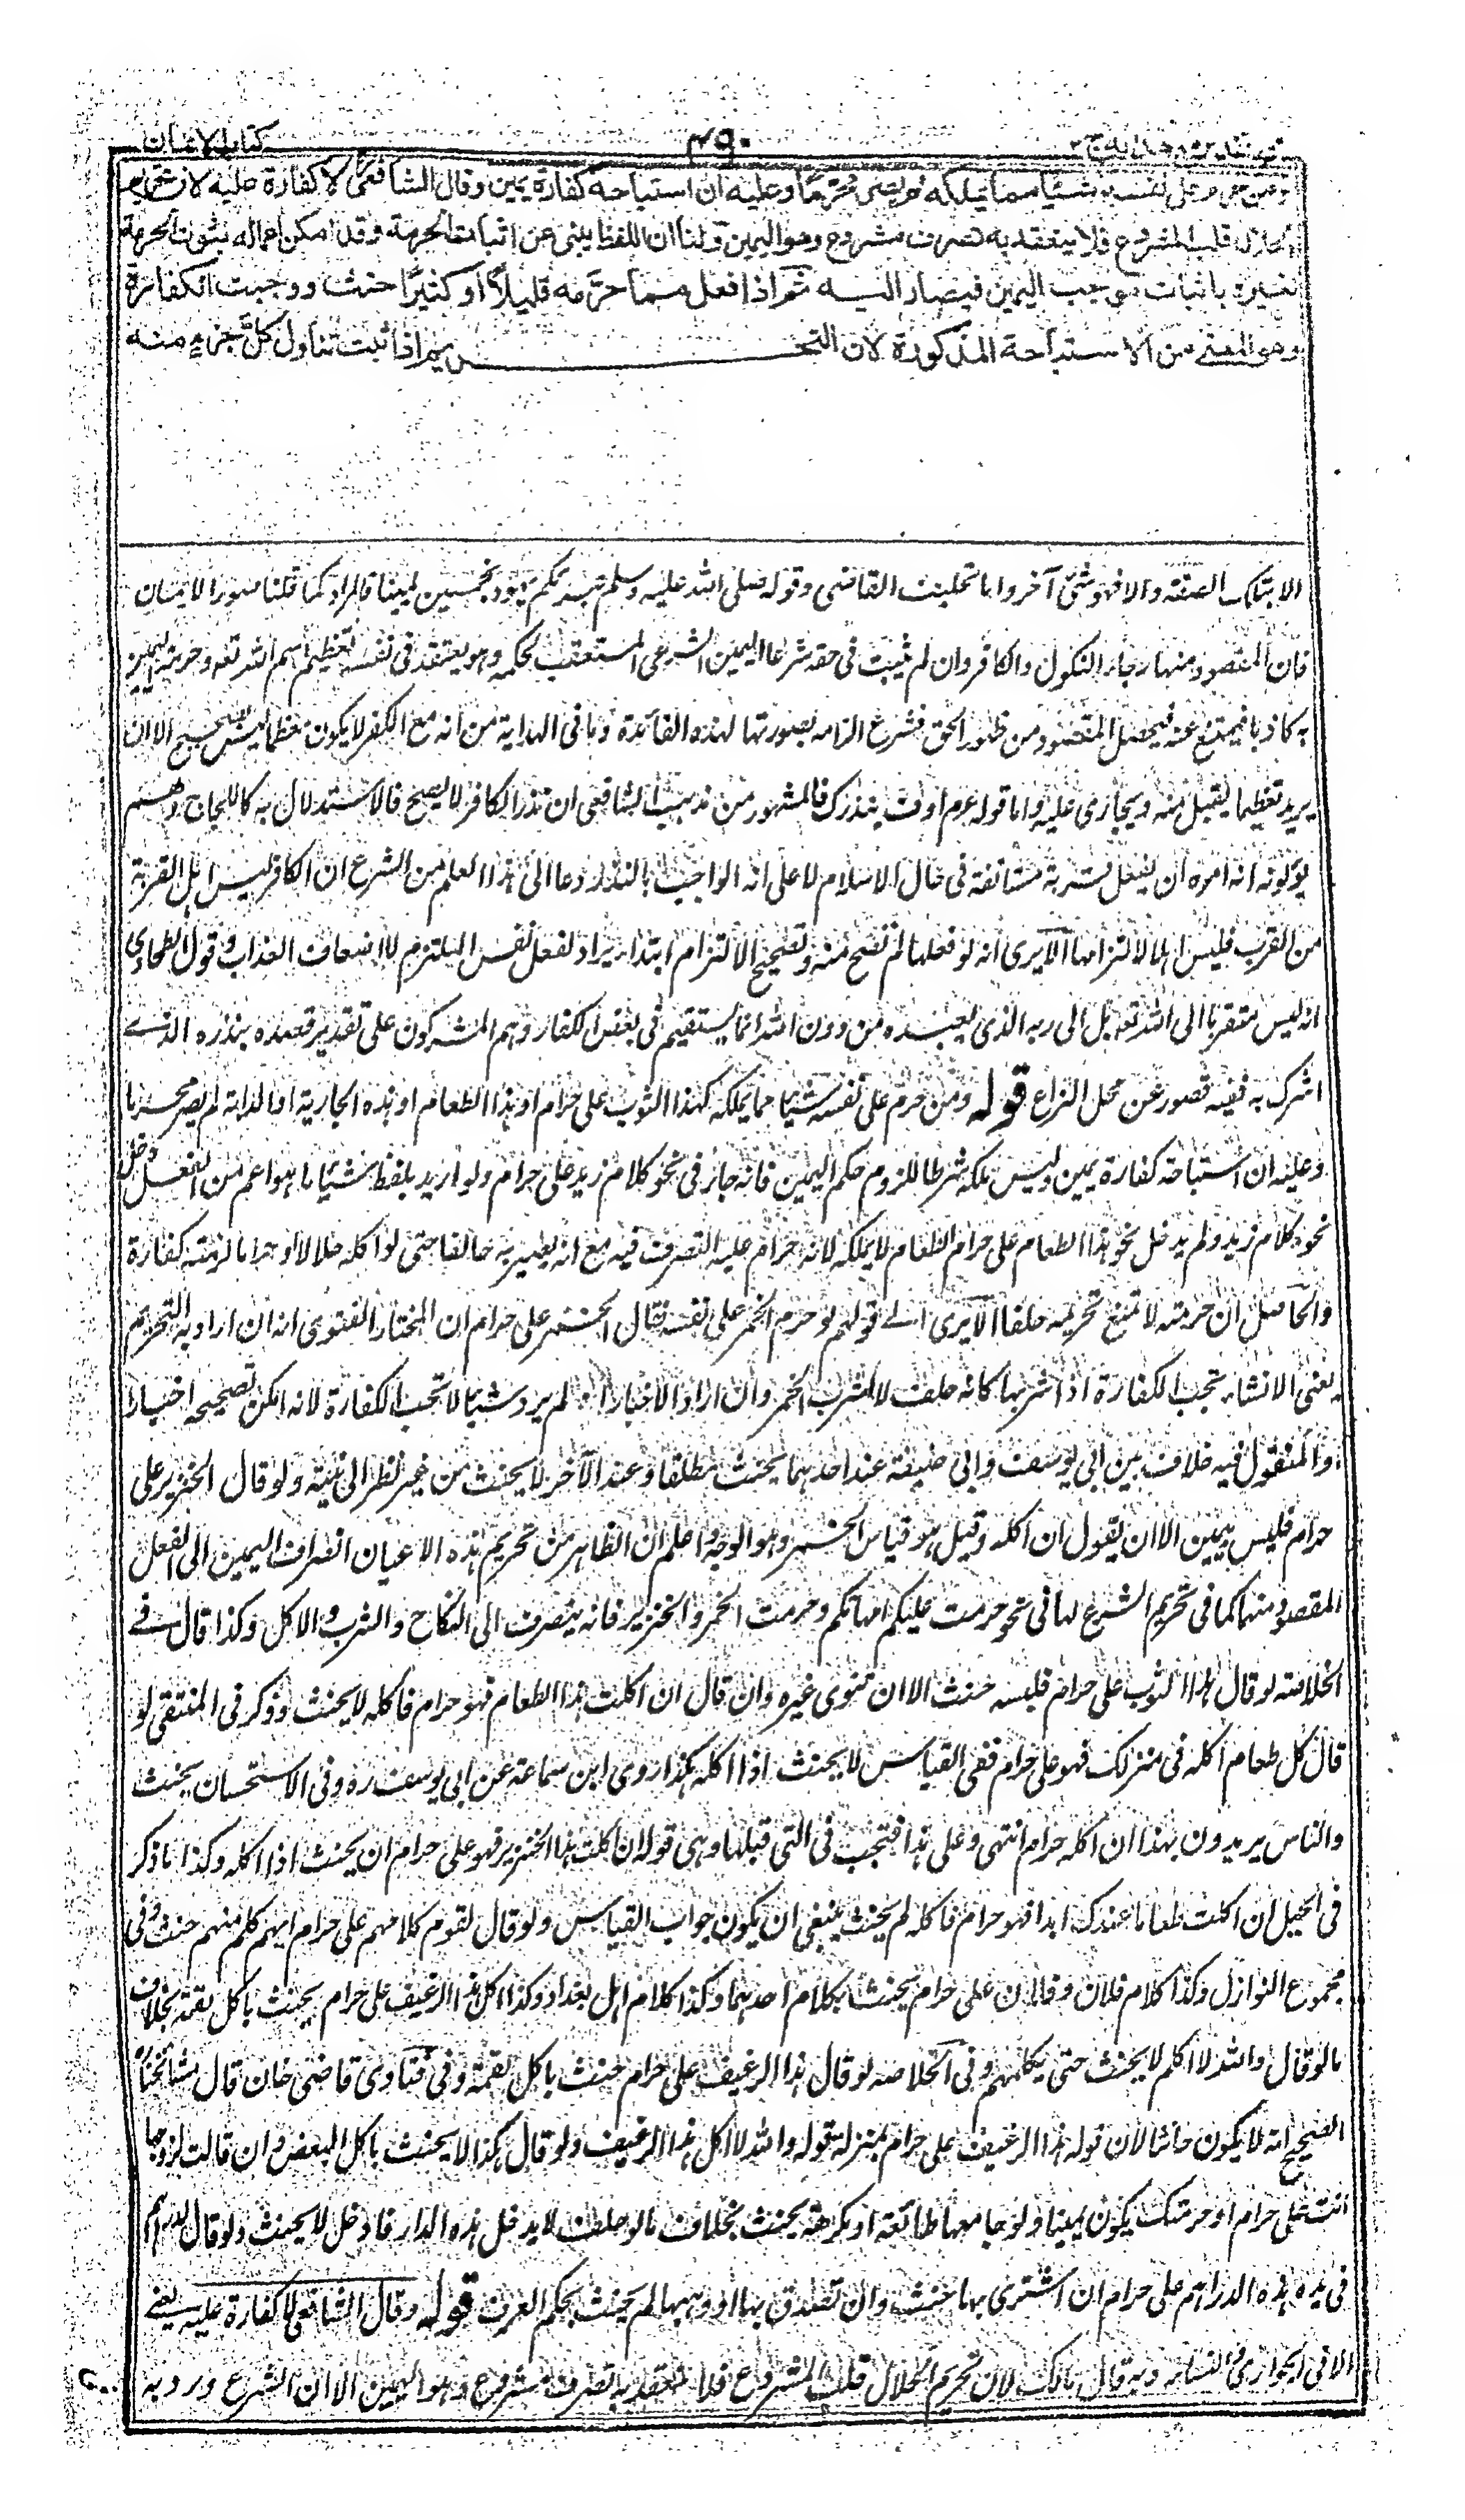 فتح القدير مع هداية ج ٢ ٤٩٠ كتاب الايمان
ومن حرم على نفسه شيئا مما يملكه لم يصر محرما وعليه ان استباحه كفارة يمين وقال الشافعي لا كفارة عليه لان تحريم
الحلال قلب المشروع فلا ينعقد به تصرف مشروع وهو اليمين ولنا ان اللفظ ينبئ عن اثبات الحرمة وقد امكن اعماله بثبوت الحرمة
لغيره باثبات موجب اليمين فيصار اليه ثم اذا فعل مما حرمه قليلا او كثيرا حنث ووجبت الكفارة
وهو المعنى من الاستباحة المذكورة لان التحريم اذا ثبت تناول كل جزء منه
الا بتلك الصفة والا فهو شئ آخر واما تحليف القاضى وقوله صلى الله عليه وسلم تبرئكم يهود بخمسين يمينا فالمراد كما قلنا صور الايمان
فان المقصود منها رجاء النكول والكافر وان لم يثبت فى حقه شرعا اليمين الشرعى المستعقب لحكمه وهو يعتقد فى نفسه تعظيم اسم الله تعه وحرمة اليمين
به كاذبا فيمتنع عنه فيحصل المقصود من ظهور الحق فشرع الزامه بصورتها لهذه الفائدة وما فى الهداية من انه مع الكفر لا يكون معظما ليس بصحيح الا ان
يريد تعظيما يقبل منه ويجازى عليه واما قوله عم اوف بنذرك فالمشهور من مذهب الشافعى ان نذر الكافر لا يصح فالاستدلال به كاللجاج وهم
يؤولونه انه امره ان يفعل قربة مستانفة فى حال الاسلام لا على انه الواجب بالنذر ودعا الى هذا العلم من الشرع ان الكافر ليس اهل القربة
من القرب فليس اهلا لالتزامها الا يرى انه لو فعلها لم تصح منه وتصحيح الالتزام ابتداء يراد لفعل نفس الملتزم لا اضعاف العذاب وقول الطحاوى
انه ليس متقربا الى الله تعه بل الى ربه الذى يعبده من دون الله انما يستقيم فى بعض الكفار وهم المشركون على تقدير قصده بنذره الذى
اشرك به ففيه قصور عن محل النزاع قوله ومن حرم على نفسه شيئا مما يملكه كهذا الثوب على حرام او هذا الطعام او هذه الجارية او الدابة لم يصر محرما
وعليه ان استباحه كفارة يمين وليس ملكه شرطا للزوم حكم اليمين فانه جائز فى نحو كلام زيد على حرام ولو اريد بلفظ شيئا ما هو اعم من الفعل دخل
نحو كلام زيد ولم يدخل نحو هذا الطعام على حرام لطعام لا يملكه لانه حرام عليه التصرف فيه مع انه يصير به حالفا حتى لو اكله حلالا او حراما لزمته كفارة
والحاصل ان حرمته لا تمنع تحريمه حلفا الا يرى الى قولهم لو حرم الخمر على نفسه فقال الخمر على حرام ان المختار للفتوى انه ان اراد به التحريم
يعنى الانشاء تجب الكفارة اذا شربها كانه حلف لا اشرب الخمر وان اراد الاخبار او لم يرد شيئا لا تجب الكفارة لانه امكن تصحيحه اخبارا
والمنقول فيه خلاف بين ابى يوسف وابى حنيفة عند احدهما يحنث مطلقا وعند الآخر لا يحنث من غير نظر الى نية ولو قال الخنزير على
حرام فليس بيمين الا ان يقول ان اكله وقيل هو قياس الخمر وهو الوجه واعلم ان الظاهر من تحريم هذه الاعيان انصراف اليمين الى الفعل
المقصود منها كما فى تحريم الشرع لها فى نحو حرمت عليكم امهاتكم وحرمت الخمر والخنزير فانه ينصرف الى النكاح والشرب والاكل وكذا قال فى
الخلاصة لو قال هذا الثوب على حرام فلبسه حنث الا ان ينوى غيره وان قال ان اكلت هذا الطعام فهو حرام فاكله لا يحنث وذكر فى المنتقى لو
قال كل طعام آكله فى منزلك فهو على حرام ففى القياس لا يحنث اذا اكله هكذا روى ابن سماعة عن ابى يوسف ره وفى الاستحسان يحنث
والناس يريدون بهذا ان اكله حرام انتهى وعلى هذا فيجب فى التى قبلها وهى قوله ان اكلت هذا الخنزير فهو على حرام ان يحنث اذا اكله وكذا ما ذكر
فى الحيل ان اكلت طعاما عندك ابدا فهو حرام فاكله لم يحنث ينبغى ان يكون جواب القياس ولو قال لقوم كلامهم على حرام ايهم كلم منهم حنث وفى
مجموع النوازل وكذا كلام فلان وفلان على حرام يحنث بكلام احدهما وكذا كلام اهل بغداد وكذا اكل هذا الرغيف على حرام يحنث باكل لقمة بخلاف
ما لو قال والله لا اكلم لا يحنث حتى يكلمهم وفى الخلاصه لو قال هذا الرغيف على حرام حنث باكل لقمة وفى فتاوى قاضى خان قال مشائخنا
الصحيح انه لا يكون حانثا لان قوله هذا الرغيف على حرام بمنزلة قوله والله لا آكل هذا الرغيف ولو قال هكذا لا يحنث باكل البعض وان قالت لزوجها
انت على حرام او حرمتك يكون يمينا ولو جامعها طائعة او مكرهة يحنث بخلاف ما لو حلف لا يدخل هذه الدار فادخل لا يحنث ولو قال لدراهم
فى يده هذه الدراهم على حرام ان اشترى بها حنث وان تصدق بها او وهبها لم يحنث بحكم العرف قوله وقال الشافعى لا كفارة عليه يعنى
الا فى الجوارى والنساء وبه قال مالك لان تحريم الحلال قلب المشروع فلا ينعقد به تصرف مشروع وهو اليمين الا ان الشرع ورد به